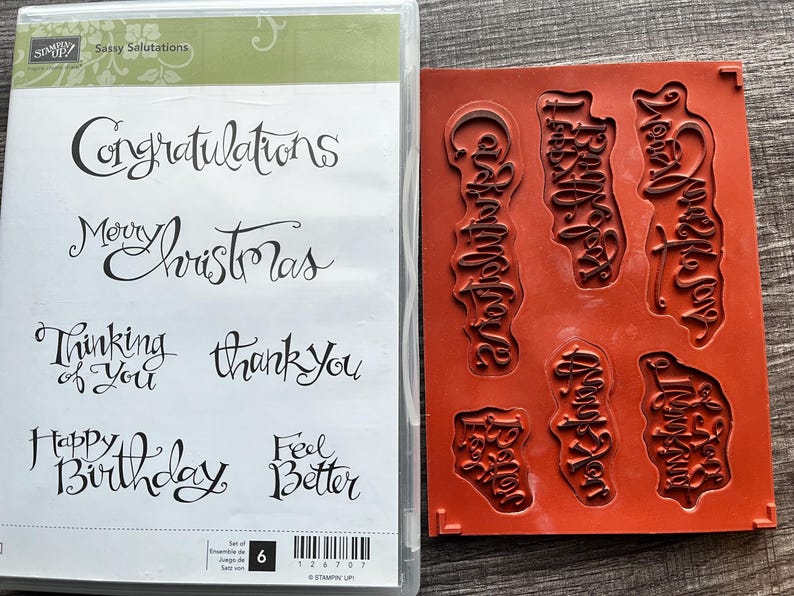 STAMPIN' UP!
Sassy Salutations
Congratulations
Merry Christmas
Thinking
of You
thank you
Happy
Birthday
Feel
Better
Set of
Ensemble de
Juego de
Satz von
6
126707
© STAMPIN' UP!